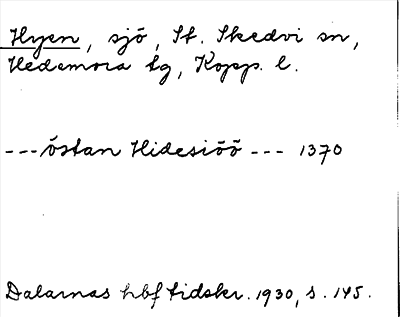 Hyen, sjö, St. Skedvi sn,
Hedemora tg, Kopp. l.
--- östan Hidesiöö --- 1370
Dalarnas hbf tidskr. 1930, s. 145.